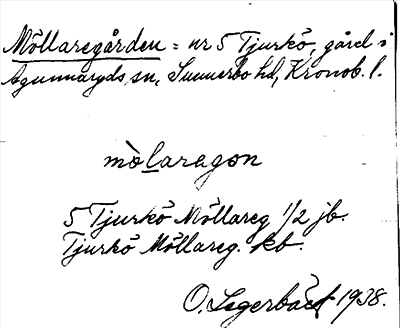 Möllaregården = nr 5 Tjurkö, gård i
Agunnaryds sn, Sunnerbo hd, Kronob. l.
mòlaragon
5 Tjurkö Möllareg 1/2 jb.
Tjurkö Möllareg. kb.
O. Segerbäck 1938.